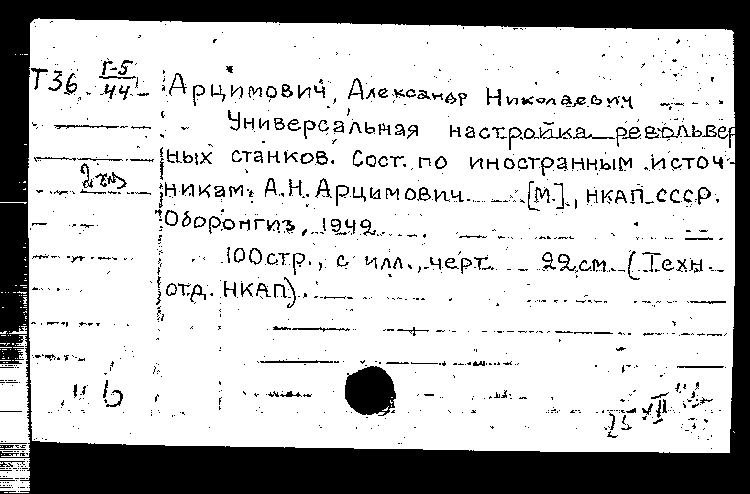 Т36 Г-5/44
Арцимович, Александр Николаевич
Универсальная настройка револьвер
ных станков. Сост. по иностранным источ-
2 экз
никам. А.Н. Арцимович [М.], НКАП СССР.
Оборонгиз, 1942
100стр., с илл., черт. 22см (Техн
отд. НКАП).
25 XII